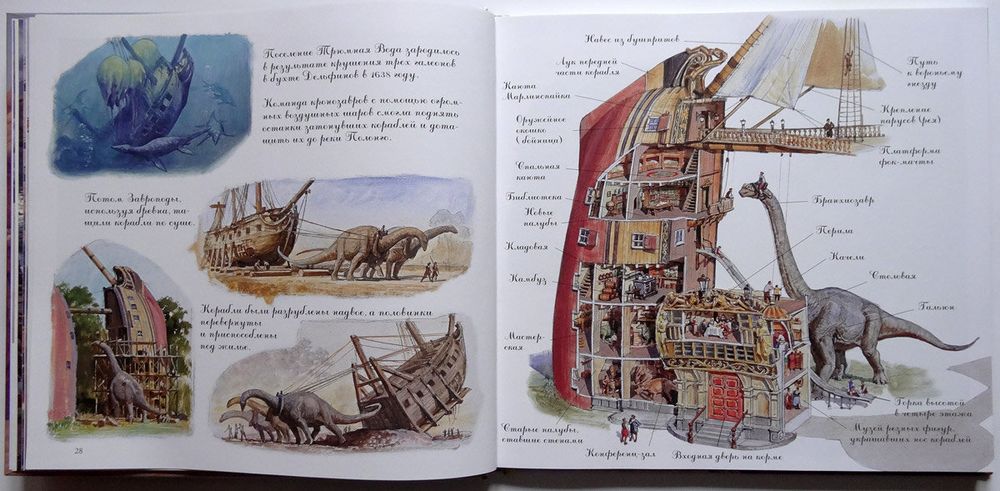 Поселение Трюмная Вода зародилось
в результате крушения трех галеонов
в бухте Дельфинов в 1638 году.
Команда кронозавров с помощью огром-
ных воздушных шаров смогла поднять
останки затонувших кораблей и дота-
щить их до реки Полонго.
Потом Завроподы,
используя бревна, та-
щили корабли по суше.
Корабли были разрублены надвое, а половинки
перевернуты
и приспособлены
под жилье.
28
Навес из бушпритов
Лук передней
части корабля
Каюта
Марлинспайка
Оружейное
окошко
(бойница)
Спальная
каюта
Библиотека
Новые
палубы
Кладовая
Камбуз
Мастер-
ская
Старые палубы,
ставшие стенами
Конференц-зал
Входная дверь на корме
Путь
к вороньему
гнезду
Крепление
парусов (рея)
Платформа
фок-мачты
Брахиозавр
Перила
Качели
Столовая
Гальюн
Горка высотой
в четыре этажа
Музей резных фигур,
украшавших нос кораблей